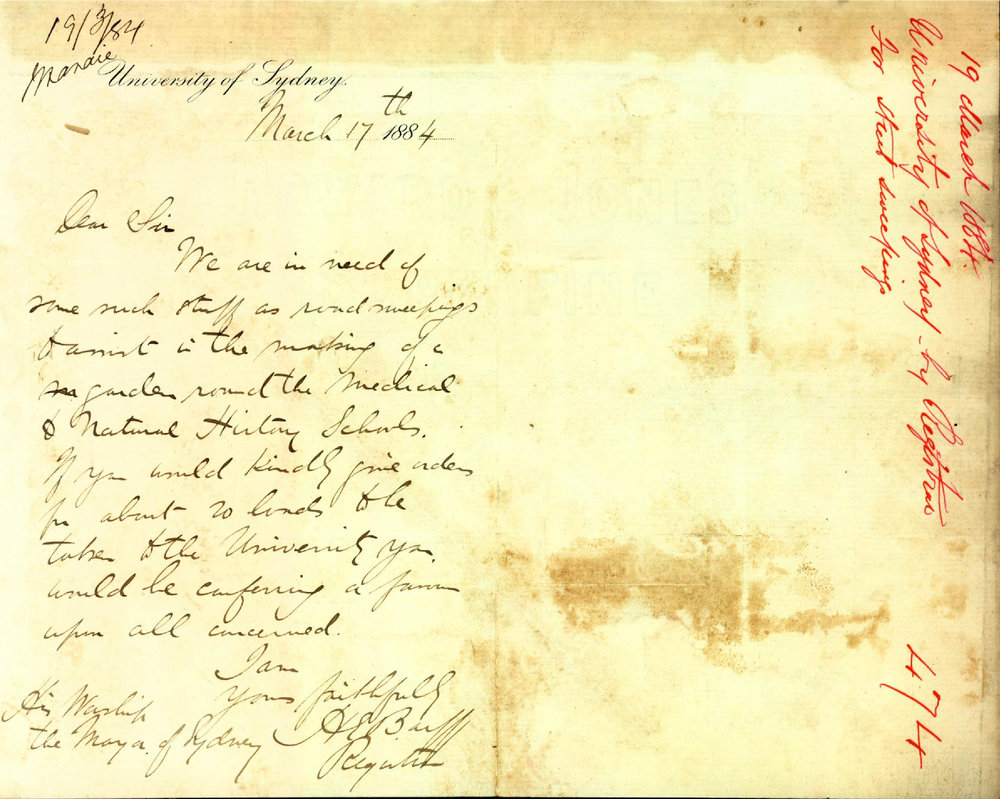 19/3/84
University of Sydney.
March 17th 1884
Dear Sir
We are in need of
some such stuff as road sweepings
to assist in the making of a
garden round the Medical
& Natural History Schools.
If you would kindly give orders
for about 20 loads to be
taken to the University you
would be conferring a favour
upon all concerned.
I am
Yours faithfully
H E Barff
Registrar
His Worship
the Mayor of Sydney
19 March 1884.
University of Sydney - by Registrar
For street sweepings
474